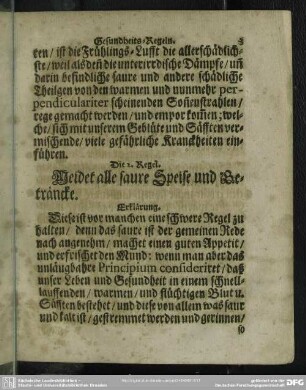 Gesundheits-Regeln. 3
ten/ ist die Frühlings-Lufft die allerschädlich-
ste/ weil alsdeñ die unterirrdische Dämpfe/ uñ
darin befindliche saure und andere schädliche
Theilgen von den warmen und nunmehr per-
pendiculariter scheinenden Soñenstrahlen/
rege gemacht werden/ und empor kom̃en; wel-
che/ sich mit unserem Geblüte und Säfften ver-
mischende/ viele gefährliche Kranckheiten ein-
führen.
Die 2. Regel.
Meidet alle saure Speise und Ge-
träncke.
Erklärung.
Diese ist vor manchen eine schwere Regel zu
halten/ denn das saure ist der gemeinen Rede
nach angenehm/ machet einen guten Appetit/
und erfrischet den Mund: wenn man aber das
unläugbahre Principium consideriret/ daß
unser Leben und Gesundheit in einem schnell-
lauffenden/ warmen/ und flüchtigen Blut u.
Säfften bestehet/ und diese von allem was saur
und kalt ist/ gestremmet werden und gerinnen/
so